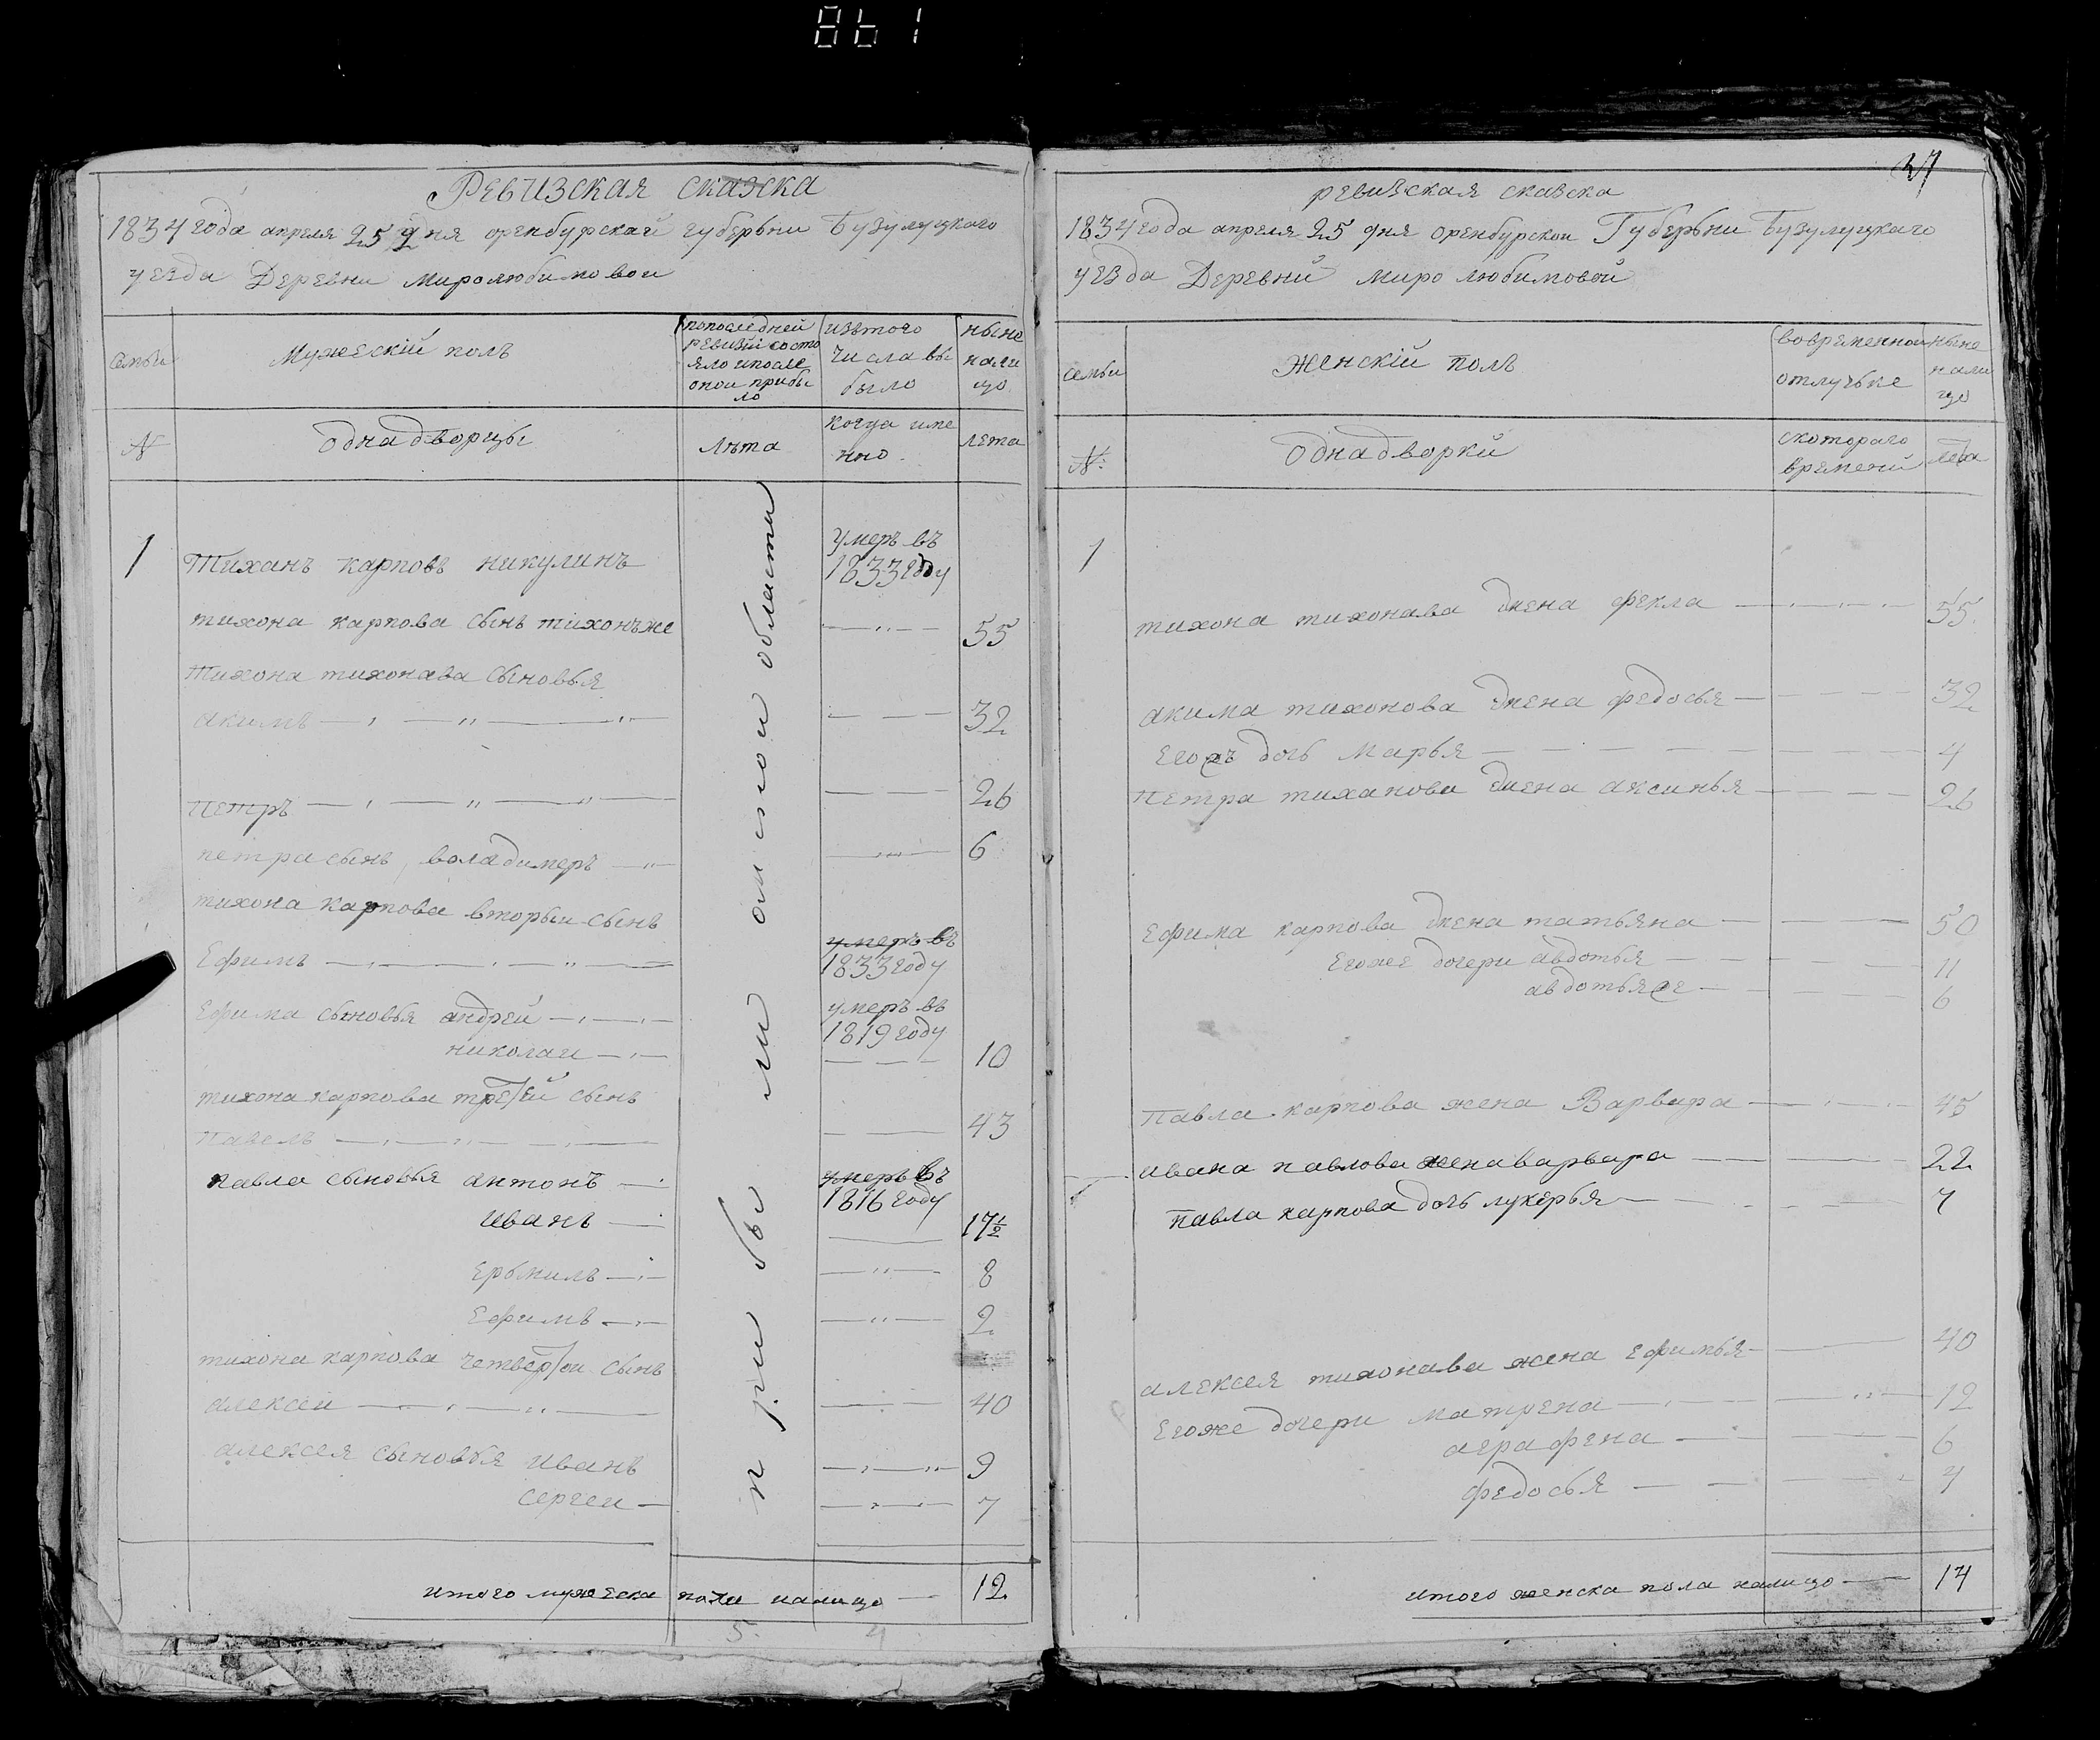 861
Ревизская сказска
1834 года апреля 25 дня оренбурскай губерьни Бузулуцкаго
уезда Деревни миролюбимовои
семьи
Мужескій полъ
попоследней ревизіи состояло ипосле онои прибыло
изътого числа выбыло
ныне налицо
№
однадворцы
лѣта
когда имено
лета
прибыли ис ног области
1
Тиханъ карповъ никулинъ
умеръ въ 1833 году
тихона карпова сынъ тихонъже 55
Тихона тихонава сыновья
акимъ 32
петръ 26
петра сынъ, воладимеръ 6
тихона карпова вторыи сынъ
Ефимъ
умеръ въ 1833 году
Ефима сыновья андрей
умеръ въ 1819 году
николаи 10
тихона карпова третей сынъ
павелъ 43
павла сыновья антонъ
умеръ въ 1816 году
иванъ 17½
Ермилъ 8
Ефимъ 2
тихона карпова четвертои сынъ
алексеи 40
алексея сыновья иванъ 9
сергеи 7
итого мужеска пола налицо 12
5. 4
37
ревизская скаска
1834 года апреля 25 дня оренбурскои Губерьни Бузулуцкаго
уезда Деревни миролюбимовой
семьи
Женскій полъ
вовременной отлучьке
ныне налицо
№
однадворки
скотораго времени
лета
1
тихона тихонава жена фекла 55
акима тихонова жена федосья 32
Егожъ дочь Марья 4
петра тиханова жена аксинья 26
Ефима карпова жена татьяна 50
Егоже дочери авдотья 11
авдотьяже 6
Павла карпова жена Варвара 45
ивана павлова женаварвара 22
павла карпова дочь лукерья 7
алексея тихонава жена Ефимья 40
Егоже дочери матрена 12
аграфена 6
федосья 4
итого женска пола налицо 14